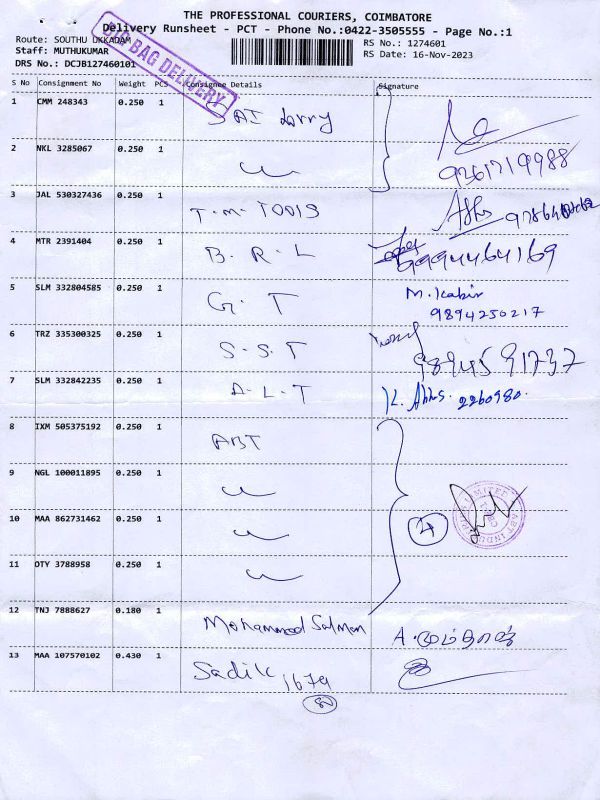 THE PROFESSIONAL COURIERS, COIMBATORE
Delivery Runsheet - PCT - Phone No.:0422-3505555 - Page No.:1
Route: SOUTHU UKKADAM
RS No.: 1274601
Staff: MUTHUKUMAR
RS Date: 16-Nov-2023
DRS No.: DCJB127460101
BAG DELIVERY
S No Consignment No Weight PCS Consignee Details Signature
1 CMM 248343 0.250 1 SAI Lorry
9361719988
2 NKL 3285067 0.250 1
3 JAL 530327436 0.250 1 T.M. TOOLS
4 MTR 2391404 0.250 1 B. R. L 9994464169
5 SLM 332804585 0.250 1 G. T M. Kabir
9894250217
6 TRZ 335300325 0.250 1 S.S.T 9894591737
7 SLM 332842235 0.250 1 A.L.T 2260980.
8 IXM 505375192 0.250 1 ABT
9 NGL 100011895 0.250 1
10 MAA 862731462 0.250 1 4
11 OTY 3788958 0.250 1
12 TNJ 7888627 0.180 1 Mohammed Salman
13 MAA 107570102 0.430 1 Sadik 1679